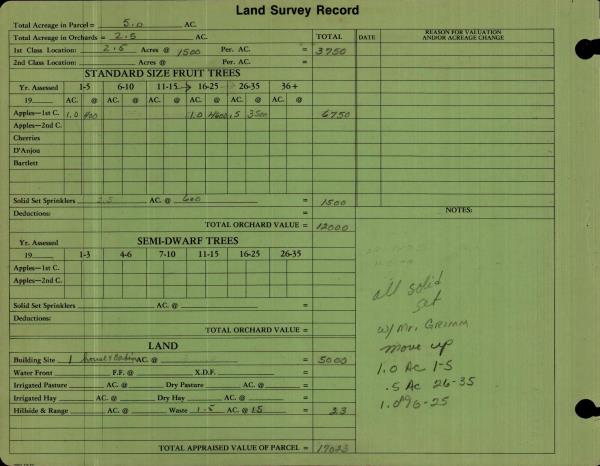 Land Survey Record
Total Acreage in Parcel = 5.0 AC.
Total Acreage in Orchards = 2.5 AC. TOTAL DATE REASON FOR VALUATION AND/OR ACREAGE CHANGE
1st Class Location: 2.5 Acres @ 1500 Per. AC. = 3750
2nd Class Location: Acres @ Per. AC. =
STANDARD SIZE FRUIT TREES
Yr. Assessed 1-5 6-10 11-15 16-25 26-35 36+
19 AC. @ AC. @ AC. @ AC. @ AC. @ AC. @
Apples—1st C. 1.0 400 1.0 4600 .5 3500 6750
Apples—2nd C.
Cherries
D'Anjou
Bartlett
Solid Set Sprinklers 2.5 AC. @ 600 = 1500
Deductions: =
TOTAL ORCHARD VALUE = 12000
NOTES:
SEMI-DWARF TREES
Yr. Assessed
19 1-3 4-6 7-10 11-15 16-25 26-35
Apples—1st C.
Apples—2nd C.
Solid Set Sprinklers AC. @ =
Deductions:
TOTAL ORCHARD VALUE =
all solid
set
w/ Mr. GRIMM
move up
1.0 Ac 1-5
.5 Ac 26-35
LAND
Building Site 1 house & Cabin AC. @ = 5000
Water Front F.F. @ X.D.F. =
Irrigated Pasture AC. @ Dry Pasture AC. @ =
Irrigated Hay AC. @ Dry Hay AC. @ =
Hillside & Range AC. @ Waste 1.5 AC. @ 15 = 23
TOTAL APPRAISED VALUE OF PARCEL = 17023